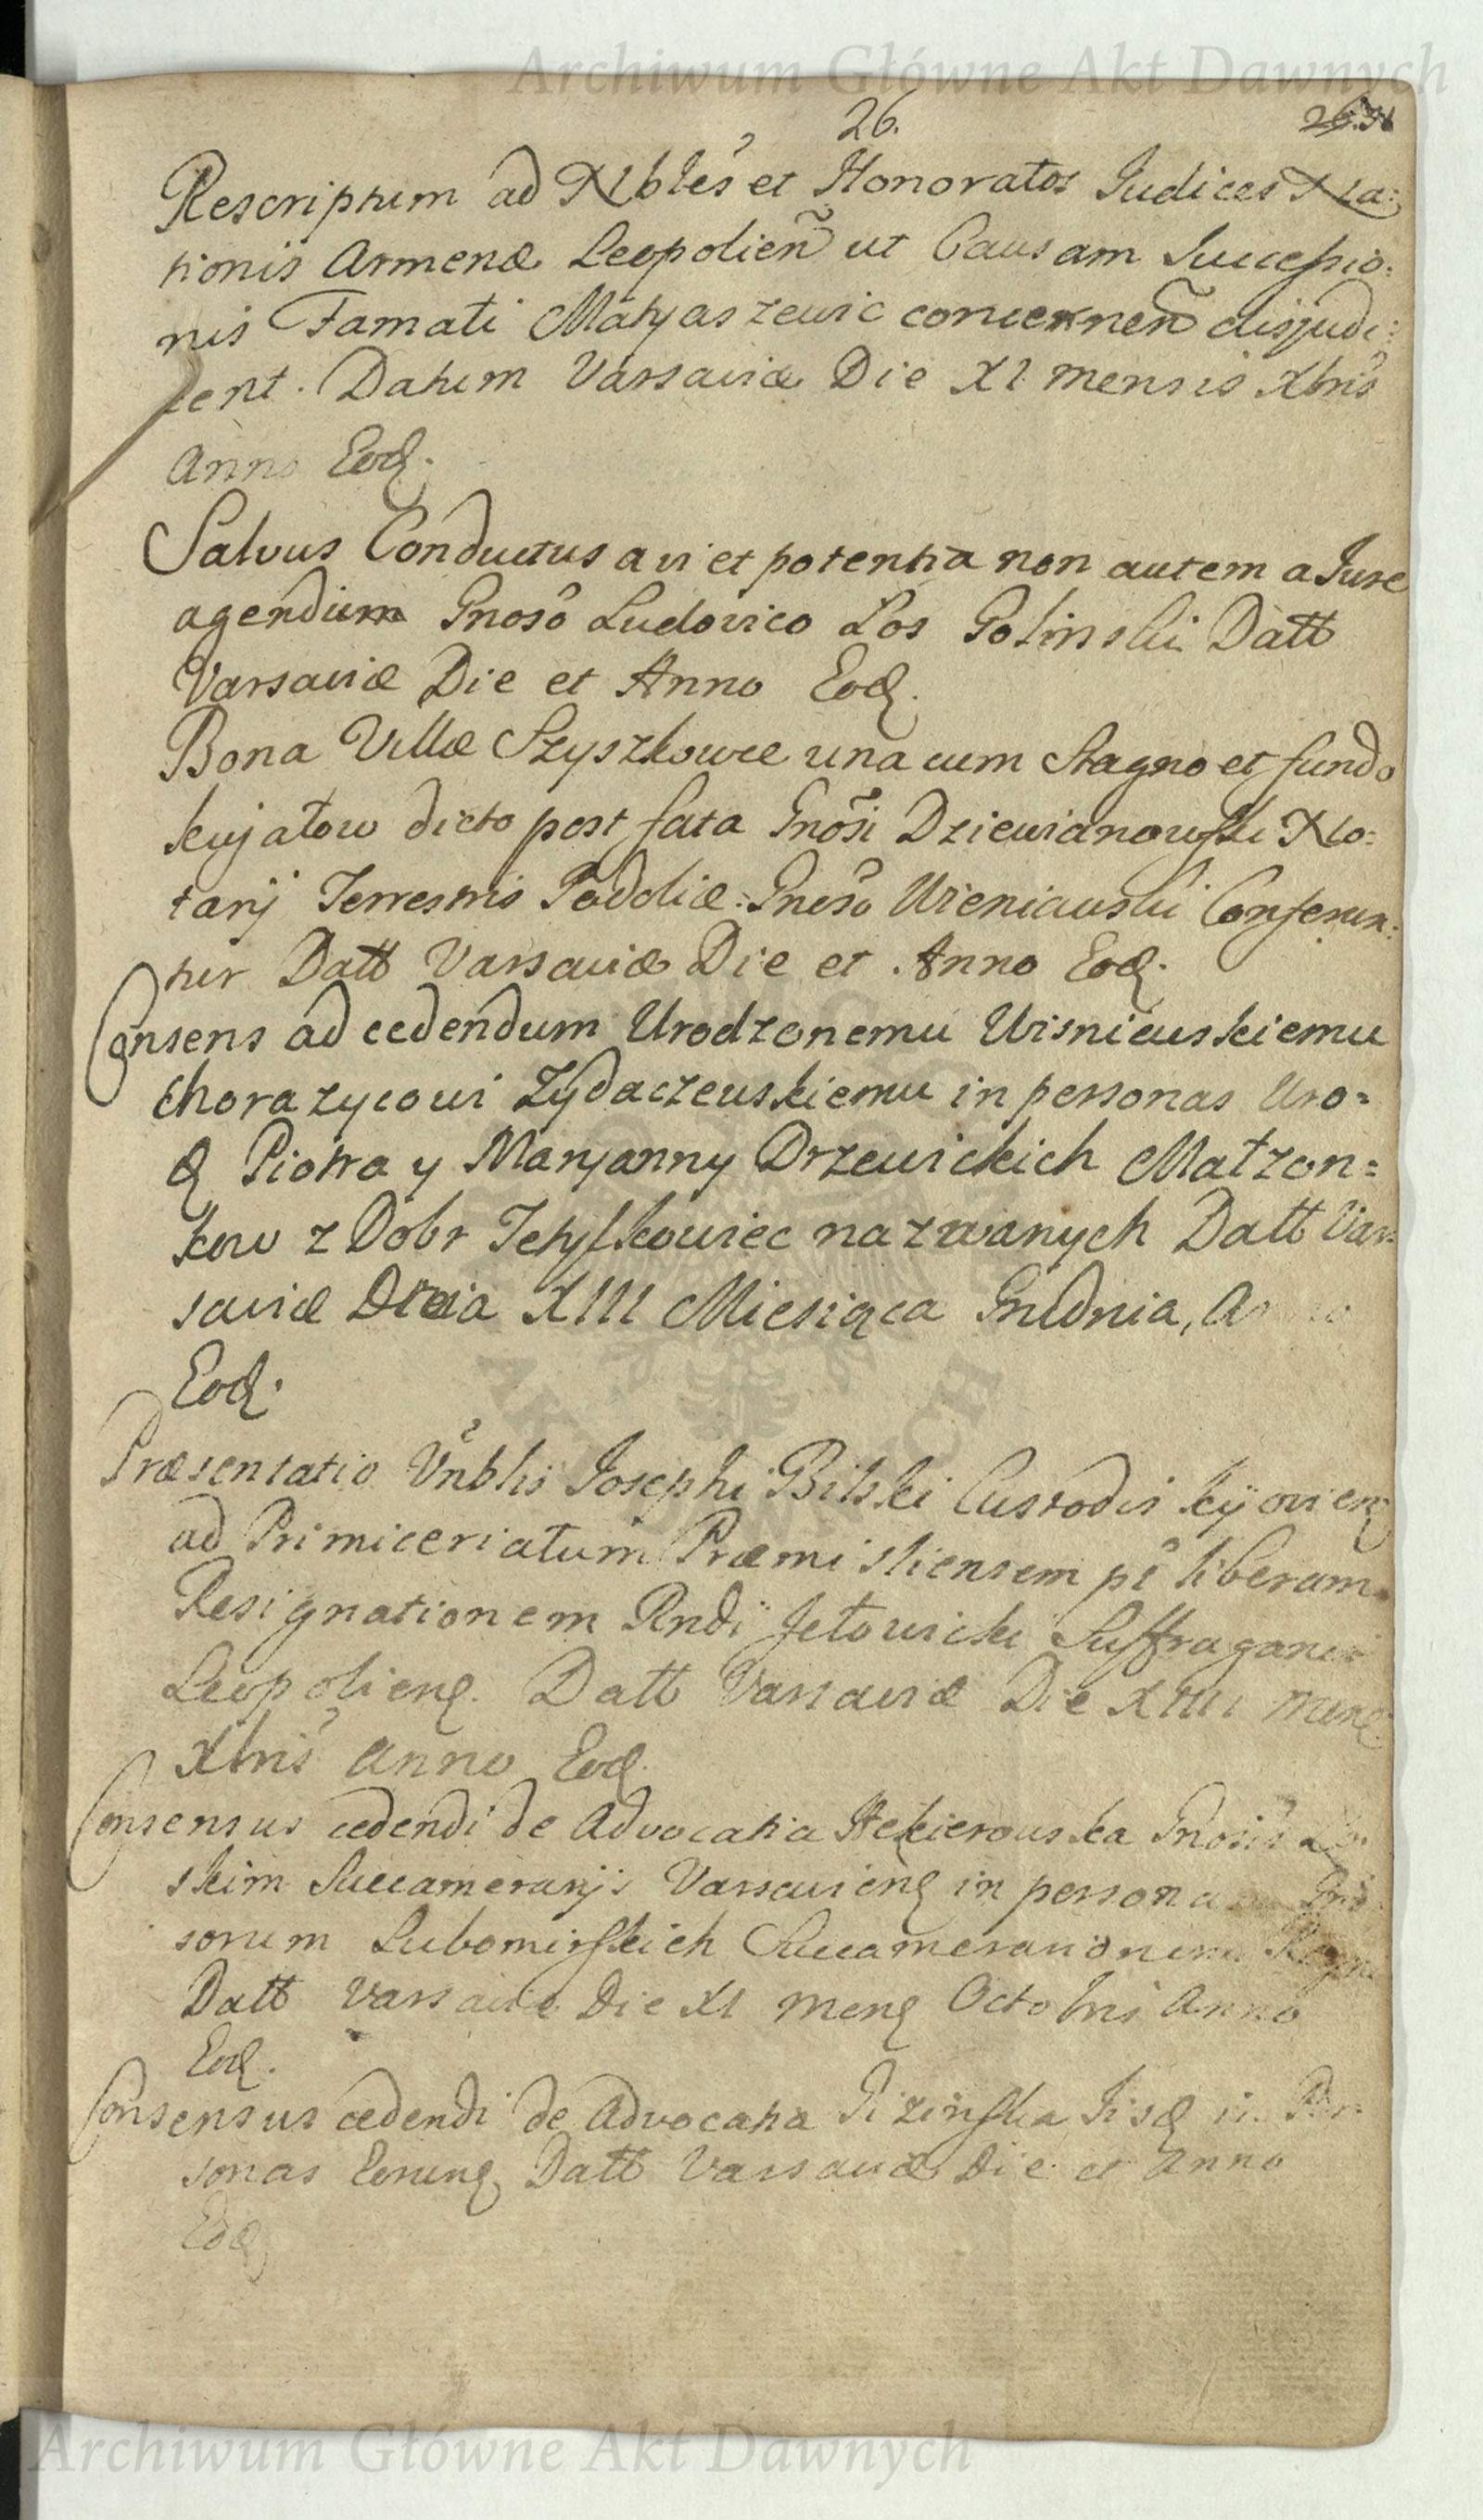 Archiwum Główne Akt Dawnych
26.
Rescriptum ad Nbles et Honoratos Judices Na:
tionis Armenæ Leopolieñ ut Causam Successio:
nis Famati Matyaszewic concerneñ disjudi:
cent. Datum Varsaviæ Die XI mensis Xbris
Anno Eod.
Salvus Conductus a vi et potentia non autem a Jure
agendium Gnoso Ludovico Los Golinski Datt
Varsaviæ Die et Anno Eod.
Bona Villæ Szyszkowce una cum Stagno et fundo
kujatow dicto post fata Gnosi Dziewianowski No:
tarij Terrestris Podoliæ: Gnoso Wieniawski Conferun:
tur Datt Varsaviæ Die et Anno Eod.
Consens ad cedendum Urodzonemu Wisniewskiemu
chorazycowi Zydaczewskiemu in personas Uro=
d Piotra y Maryanny Drzewickich Małzon=
kow z Dobr Tetyskowiec nazwanych Datt Var
saviæ Dnia XIII Miesiąca Grudnia, Anno
Eod.
Præsentatio Vnblis Josephi Bilski Custodis kijovien
ad Primiceriatum Præmisliensem pt liberam
Resignationem Rndi Jełowicki Suffraganei
Leopolien. Datt Varsaviæ Die XIIII Mens
Xbris Anno Eod.
Consensus cedendi de Advocatia Hekierowska Gnosis
skim Succamerarijs Varsavien in persona Gno
sorum Lubomirskich Succamerariorum Regni
Datt Varsaviæ Die XI Mens Octobris Anno
Eod.
Consensus cedendi de Advocatia Jizinska Iisd in Per
sonas Eorund Datt Varsaviæ Die et Anno
Eod
Archiwum Główne Akt Dawnych